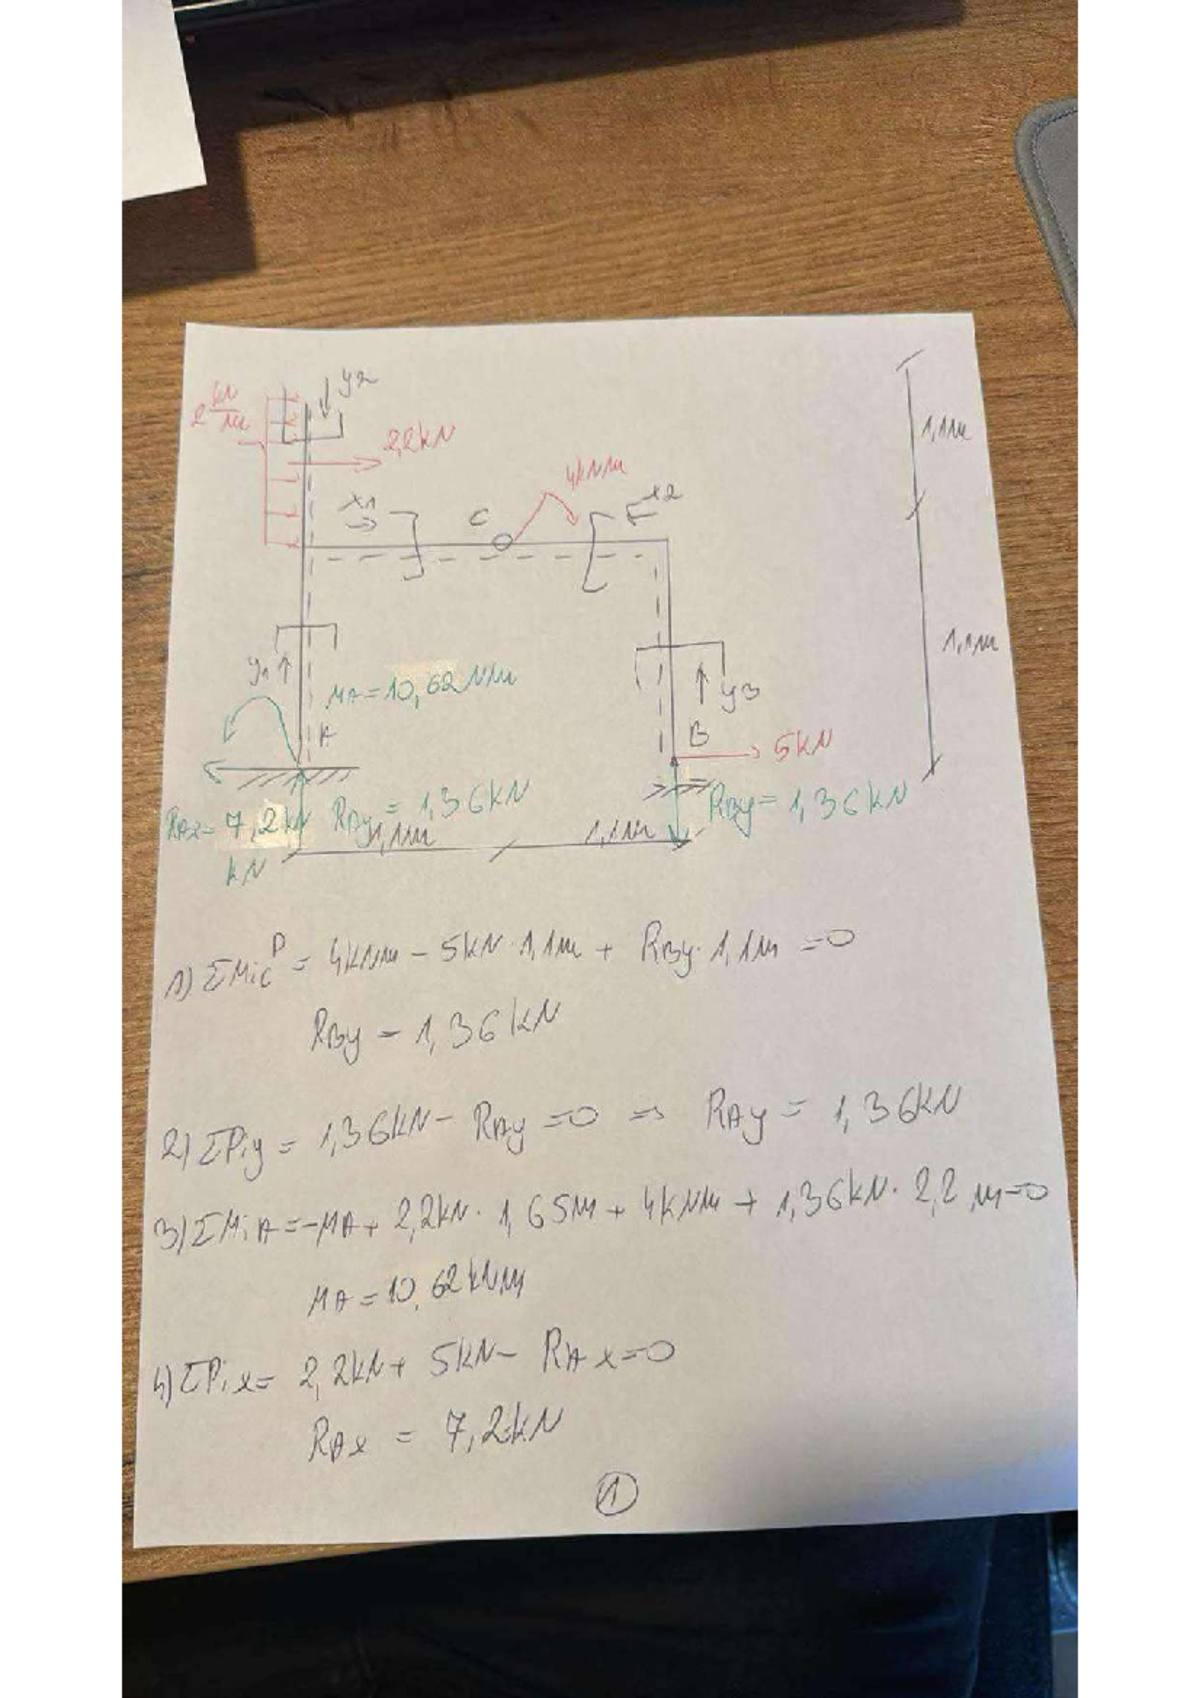 2 kN/m
y2
2,2kN
1,1m
x1
C
4kNm
x2
1,1m
y1
MA=10,62Nm
y3
A
B
5kN
RAx= 7,2kN
kN
RBy= 1,36kN
RBy= 1,36kN
1,1m
1,1m
1) ΣMic^P = 4kNm - 5kN · 1,1m + RBy · 1,1m = 0
RBy = 1,36kN
2) ΣPiy = 1,36kN - RAy = 0 => RAy = 1,36kN
3) ΣMiA = -MA + 2,2kN · 1,65m + 4kNm + 1,36kN · 2,2m=0
MA = 10,62kNm
4) ΣPix = 2,2kN + 5kN - RAx=0
RAx = 7,2kN
1